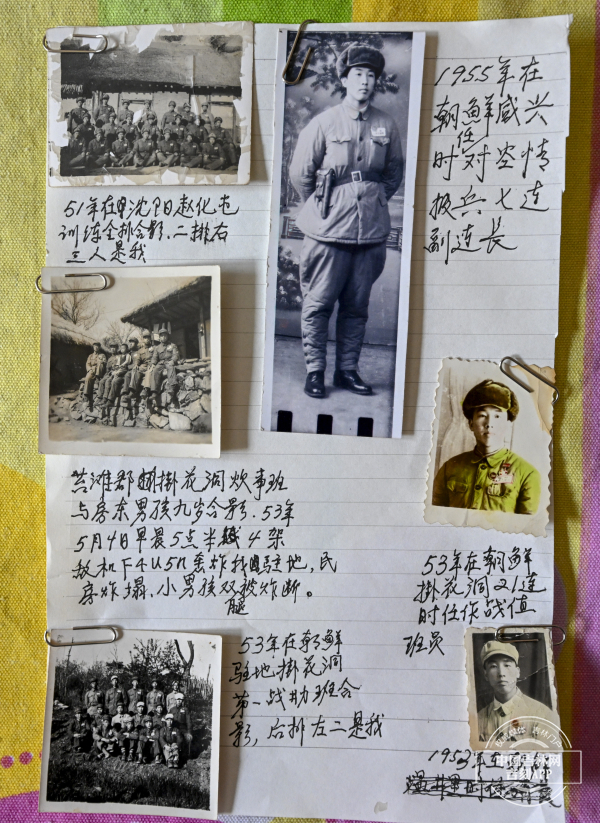 51年在沈阳赵化屯
训练全排合影.二排右
三人是我
1955年在
朝鲜咸兴
时任对空情
报兵七连
副连长
掛花洞炊事班
与房东男孩九岁合影.53年
5月4日早晨5点半 4架
敌机F4U5N轰炸我驻地,民
房炸塌.小男孩双腿被炸断。
53年在朝鲜
掛花洞21连
时任作战值
班员
53年在朝鲜
驻地掛花洞
第一战勤班合
影,后排左二是我
1953年
中国吉林网
吉刻APP